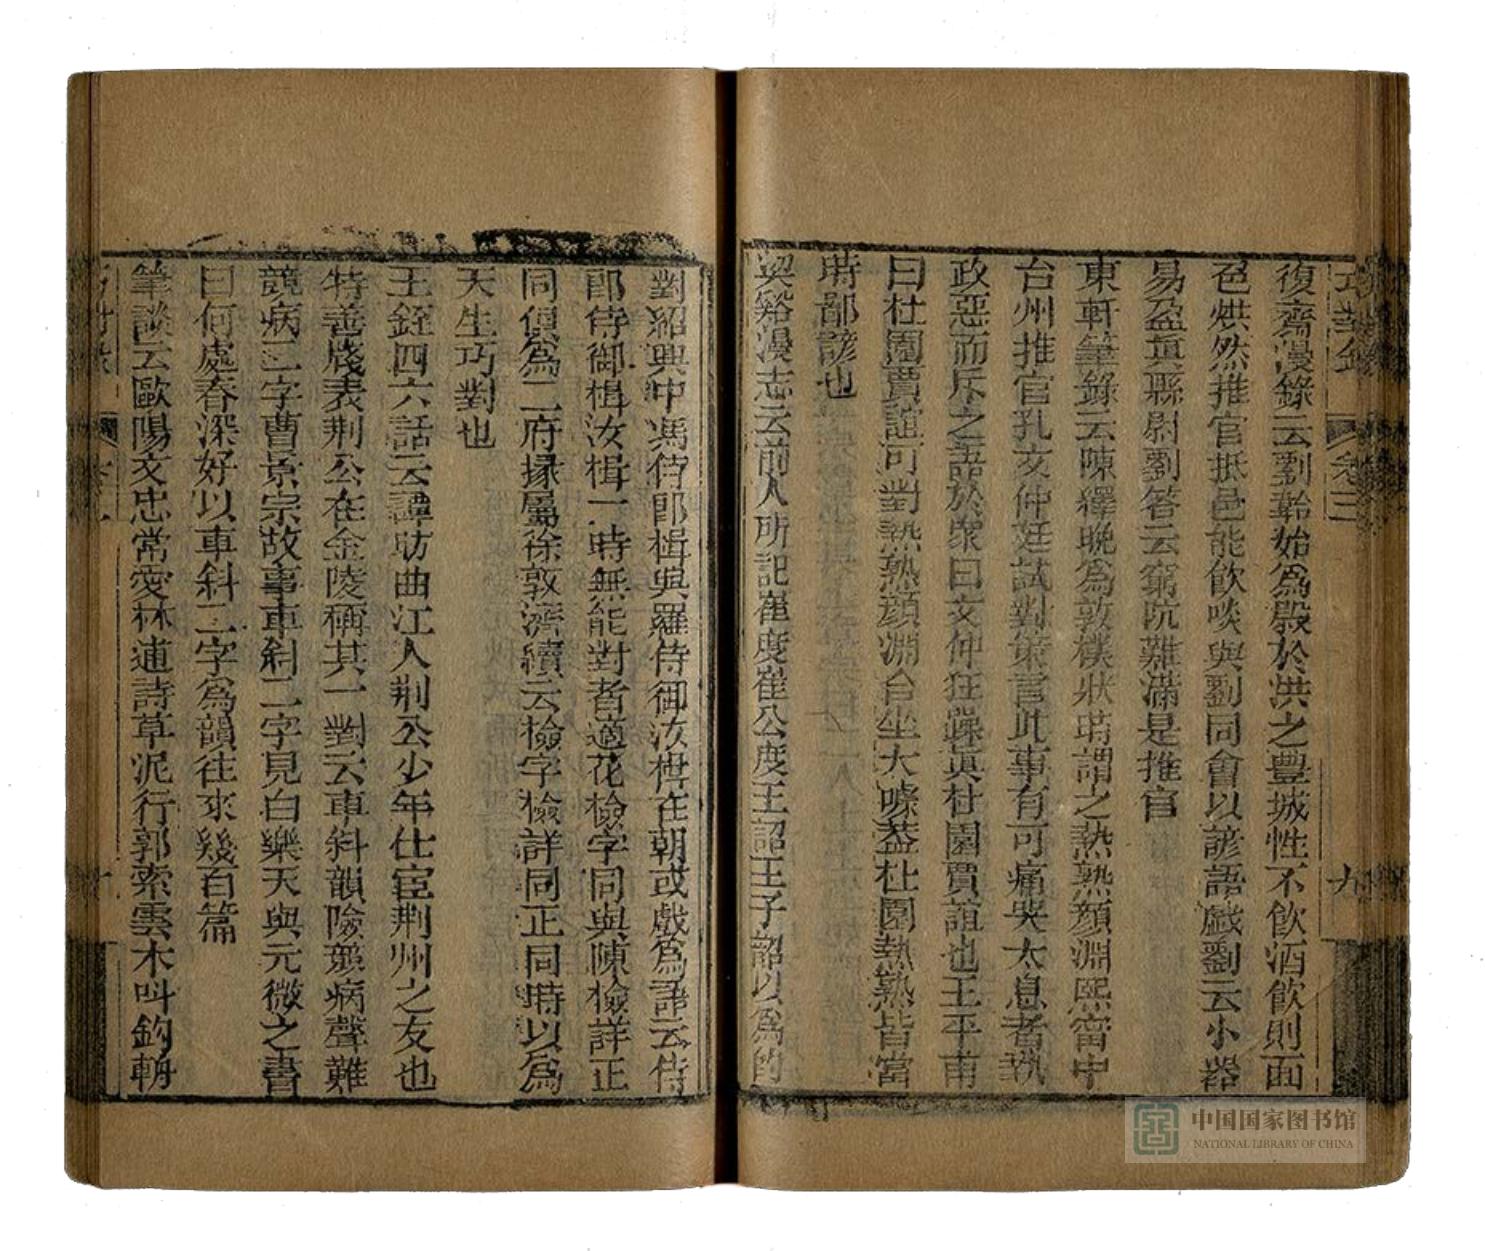 巧對錄 卷三 九
復齋漫錄云劉韐始為殿於洪之豐城性不飲酒飲則面
色烘然推官抵邑能飲啖與劉同會以諺語戲劉云小器
易盈真縣尉劉答云窮阬難滿是推官
東軒筆錄云陳繹晚為敦樸狀時謂之熱熟顏淵熙甯中
台州推官孔文仲廷試對策言此事有可痛哭太息者執
政惡而斥之繹語於眾曰文仲狂躁真杜園賈誼也王平甫
曰杜園賈誼可對熱熟顏淵合坐大噱蓋杜園熱熟皆當
時鄙諺也
溪漫志云前人所記崔度崔公度王韶王子韶以為的
對紹興中馮侍郎楫與羅侍御汝楫在朝或戲為語云侍
郎侍御楫汝楫一時無能對者適花檢字同與陳檢詳正
同俱為二府掾屬徐敦濟續云檢字檢詳同正同時以為
天生巧對也
王銍四六話云譚昉曲江人荆公少年仕宦荆州之友也
特善牋表荆公在金陵稱其一對云車斜韻險競病聲難
競病二字曹景宗故事車斜二字見白樂天與元微之書
曰何處春深好以車斜二字為韻往來幾百篇
筆談云歐陽文忠常愛林逋詩草泥行郭索雲木叫鉤輈
中国国家图书馆
NATIONAL LIBRARY OF CHINA